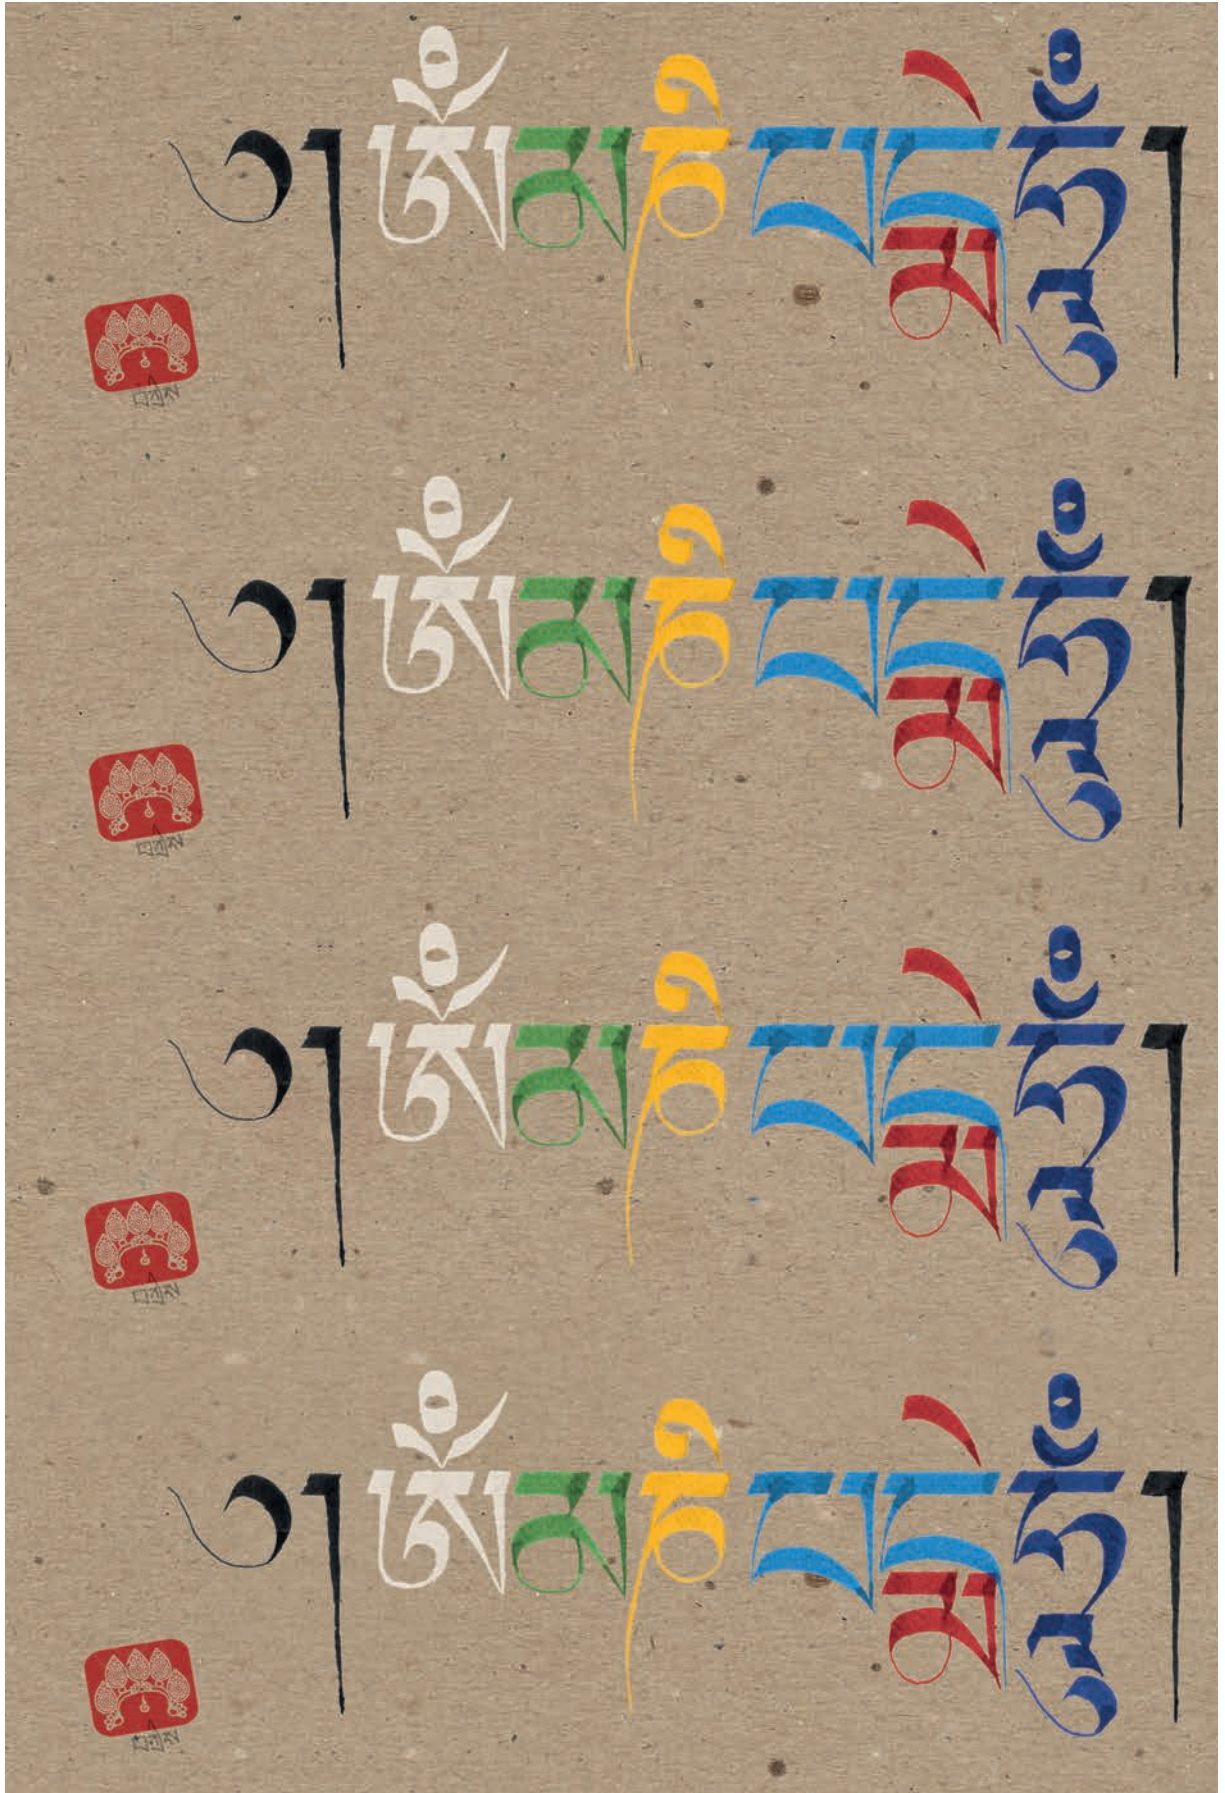 ༄།ཨོཾམཎིཔདྨེཧཱུྃ།
༄།ཨོཾམཎིཔདྨེཧཱུྃ།
༄།ཨོཾམཎིཔདྨེཧཱུྃ།
༄།ཨོཾམཎིཔདྨེཧཱུྃ།